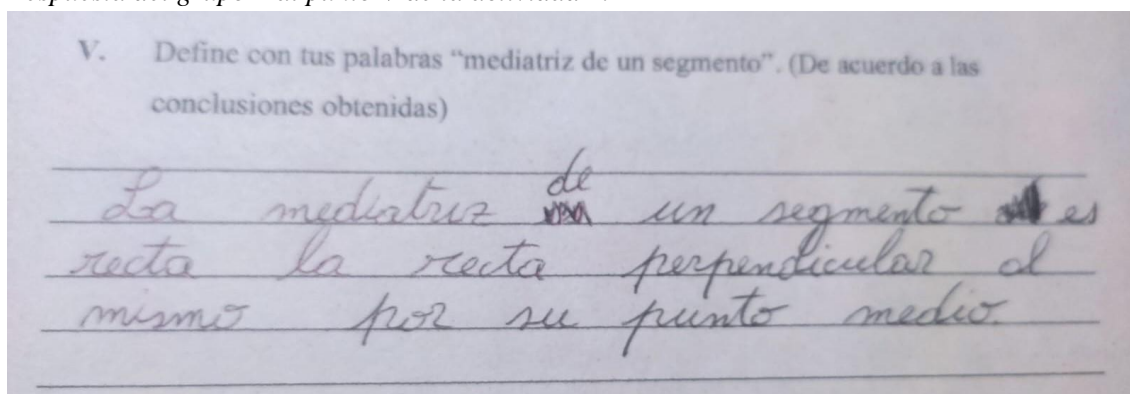 V. Define con tus palabras “mediatriz de un segmento”. (De acuerdo a las
conclusiones obtenidas)
La mediatriz de un segmento es
recta la recta perpendicular al
mismo por su punto medio.